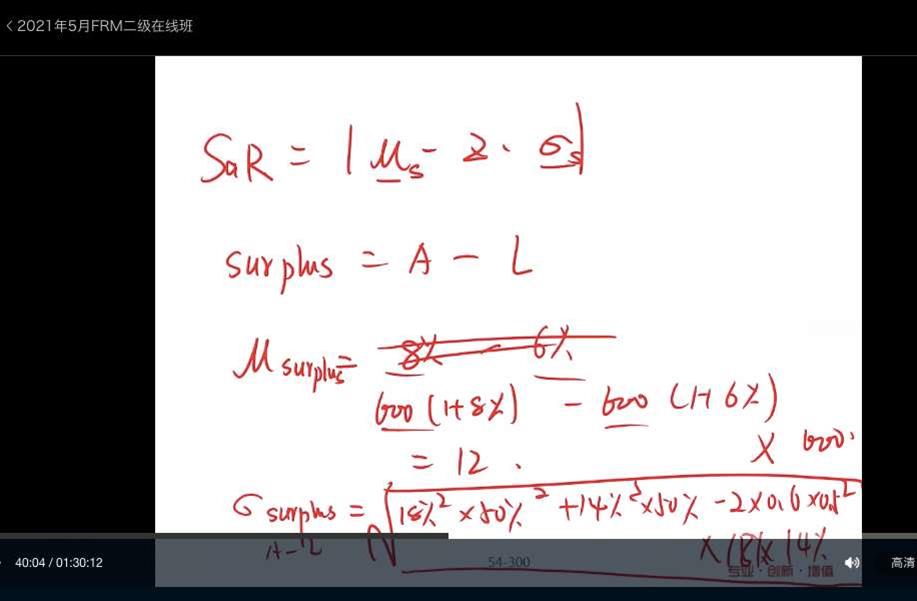 2021年5月FRM二级在线班
SaR = |μs - z · σs|
surplus = A - L
μ surplus = 8% - 6%
600 (1+8%) - 600 (1+6%)
= 12 .
× 600
σ surplus = √18%² × 50%² + 14%² × 50% - 2×0.6×0.5²
A-L
×18%×14%
40:04 / 01:30:12
54-300
专业·创新·增值
高清